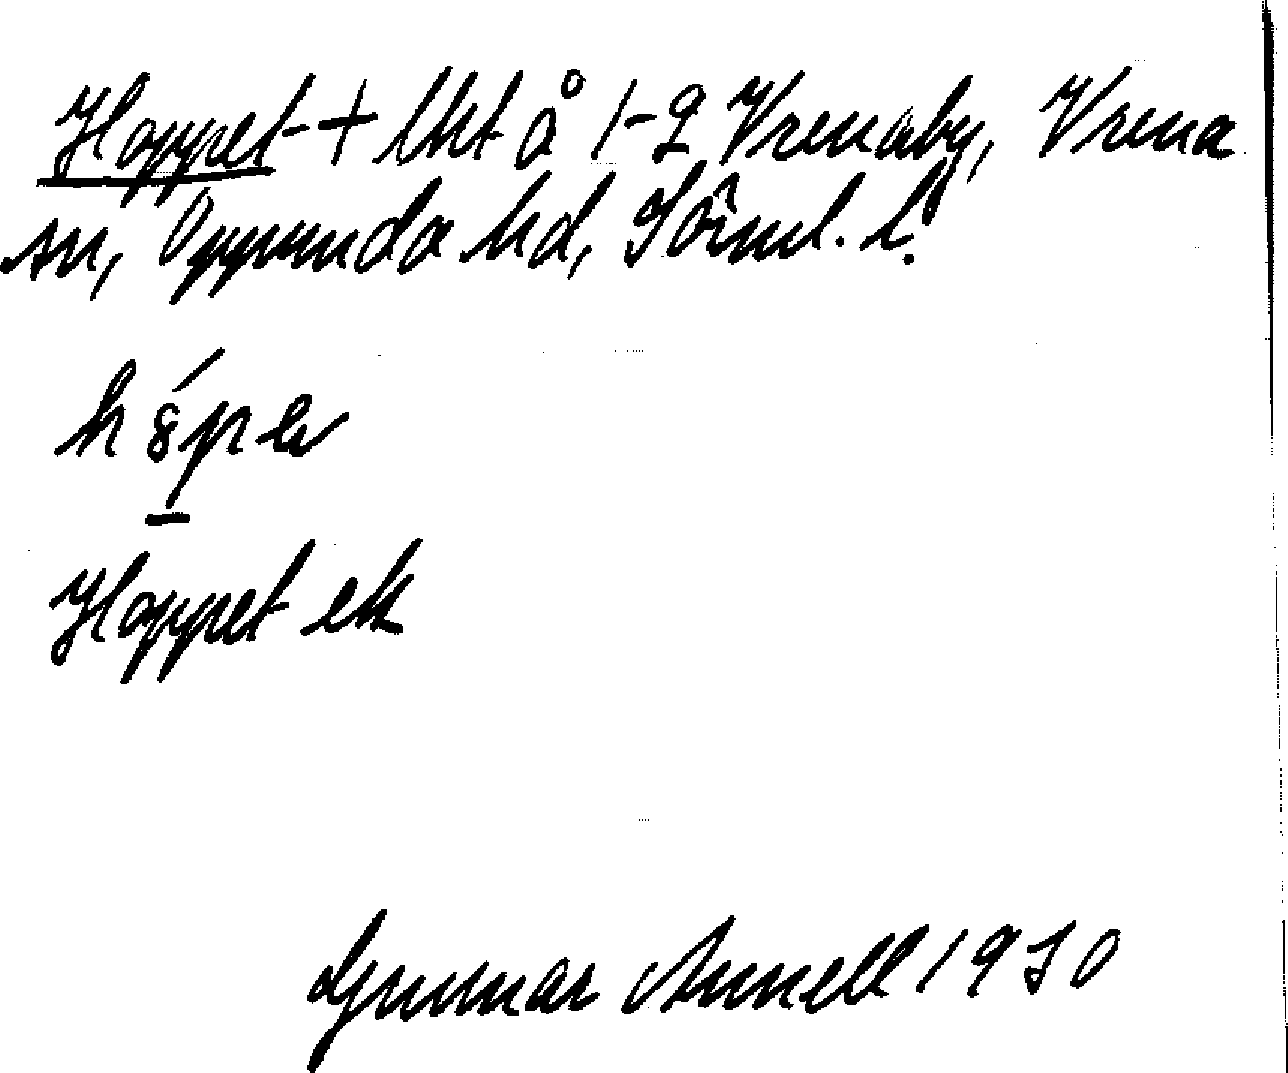 Hoppet + lht å 1-2 Vrenaby, Vrena
sn, Oppunda hd, Söml. l.
Hoppet ek
Gunnar Annell 1930